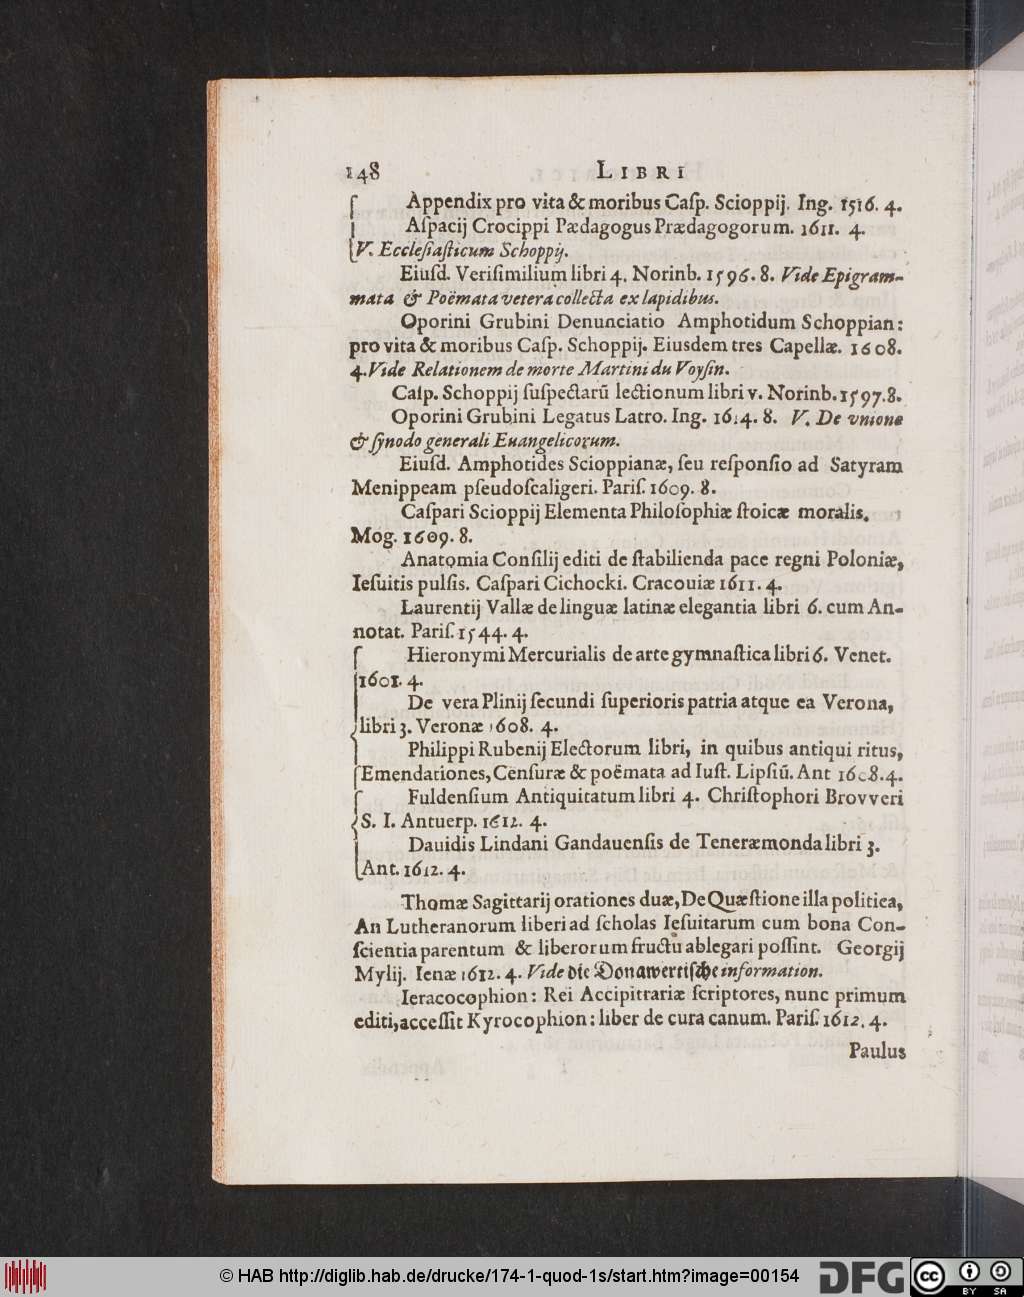 148 LIBRI
Appendix pro vita & moribus Caſp. Scioppij. Ing. 1516. 4.
Aſpacij Crocippi Pædagogus Prædagogorum. 1611. 4.
V. Eccleſiaſticum Schoppij.
Eiuſd. Veriſimilium libri 4. Norinb. 1596. 8. Vide Epigram-
mata & Poëmata vetera collecta ex lapidibus.
Oporini Grubini Denunciatio Amphotidum Schoppian:
pro vita & moribus Caſp. Schoppij. Eiusdem tres Capellæ. 1608.
4. Vide Relationem de morte Martini du Voyſin.
Caſp. Schoppij ſuſpectarū lectionum libri v. Norinb. 1597. 8.
Oporini Grubini Legatus Latro. Ing. 1614. 8. V. De vnione
& ſynodo generali Euangelicorum.
Eiuſd. Amphotides Scioppianæ, ſeu reſponſio ad Satyram
Menippeam pſeudoſcaligeri. Pariſ. 1609. 8.
Caſpari Scioppij Elementa Philoſophiæ ſtoicæ moralis.
Mog. 1609. 8.
Anatomia Conſilij editi de ſtabilienda pace regni Poloniæ,
Ieſuitis pulſis. Caſpari Cichocki. Cracouiæ 1611. 4.
Laurentij Vallæ de linguæ latinæ elegantia libri 6. cum An-
notat. Pariſ. 1544. 4.
Hieronymi Mercurialis de arte gymnaſtica libri 6. Venet.
1601. 4.
De vera Plinij ſecundi ſuperioris patria atque ea Verona,
libri 3. Veronæ 1608. 4.
Philippi Rubenij Electorum libri, in quibus antiqui ritus,
Emendationes, Cenſuræ & poëmata ad Iuſt. Lipſiū. Ant 1608. 4.
Fuldenſium Antiquitatum libri 4. Chriſtophori Brovveri
S. I. Antuerp. 1612. 4.
Dauidis Lindani Gandauenſis de Teneræmonda libri 3.
Ant. 1612. 4.
Thomæ Sagittarij orationes duæ, De Quæſtione illa politica,
An Lutheranorum liberi ad ſcholas Ieſuitarum cum bona Con-
ſcientia parentum & liberorum fructu ablegari poſſint. Georgij
Mylij. Ienæ 1612. 4. Vide die Donawertiſche information.
Ieracocophion: Rei Accipitrariæ ſcriptores, nunc primum
editi, acceſſit Kyrocophion: liber de cura canum. Pariſ. 1612. 4.
Paulus
© HAB http://diglib.hab.de/drucke/174-1-quod-1s/start.htm?image=00154
DFG cc BY SA